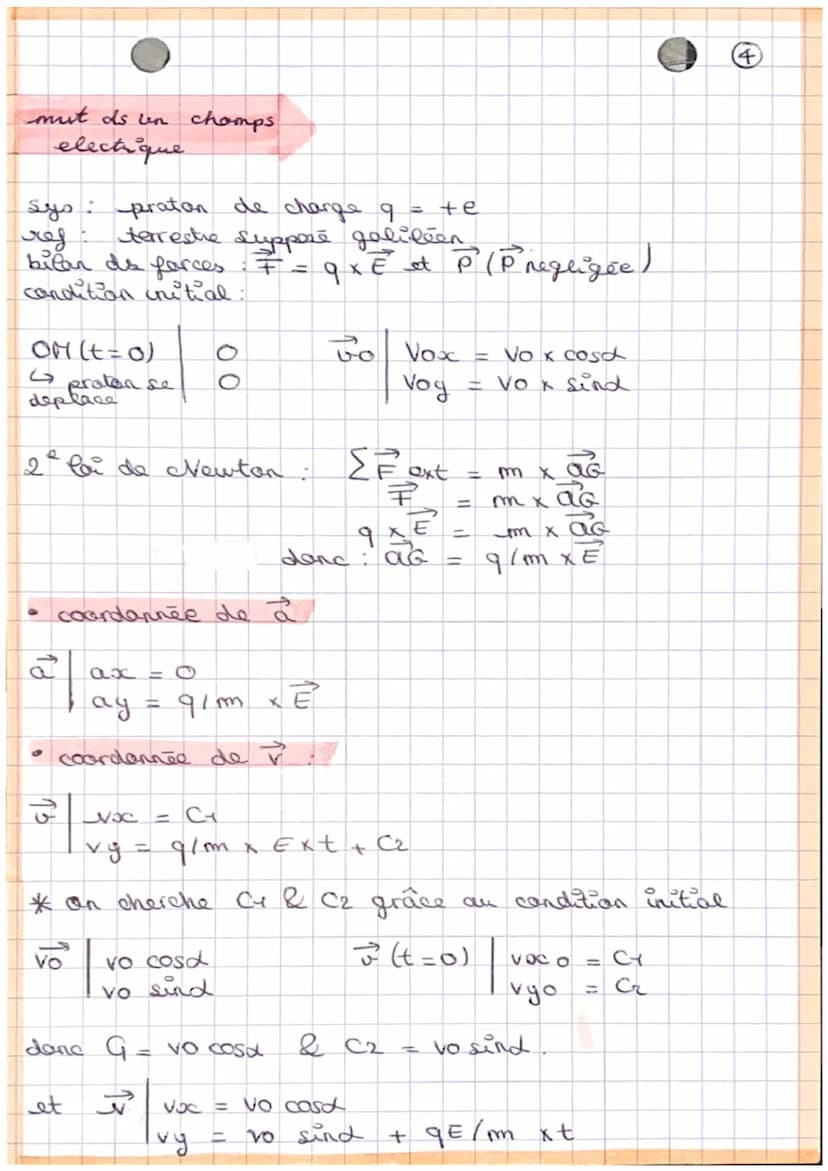 ④
mvt ds un champs
electrique
sys : proton de charge q = +e
ref : terrestre supposé galiléen
bilan de forces : F⃗ = q x E⃗ et P⃗ (P⃗ negligée)
condition initial :
OM (t=0) | 0    v⃗0 | V0x = V0 x cosα
↳ proton se | 0    | V0y = V0 x sinα
deplace
2e loi de Newton : ΣF⃗ ext = m x a⃗G
F⃗ = m x a⃗G
q x E⃗ = m x a⃗G
donc : a⃗G = q/m x E⃗
• coordonnée de a⃗
a⃗ | ax = 0
| ay = q/m x E⃗
• coordonnée de v⃗ :
v⃗ | vx = C1
| vy = q/m x E x t + C2
* on cherche C1 & C2 grâce au condition initial
v⃗0 | v0 cosα    v⃗ (t=0) | vx0 = C1
| v0 sinα    | vy0 = C2
donc C1 = v0 cosα & C2 = v0 sinα.
et v⃗ | vx = v0 cosα
| vy = v0 sinα + qE/m xt